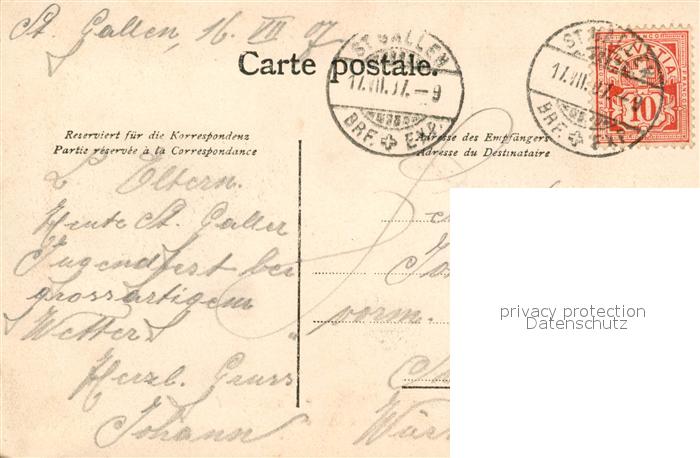 St. Gallen, 16 VII 07
Carte postale.
ST GALLEN
17.VII.07.-9
BRF. EXP.
17.VII.07.-9
BRF. EXP.
HELVETIA
FRANCO
10
Reserviert für die Korrespondenz
Partie réservée à la Correspondance
Adresse des Empfängers
Adresse du Destinataire
L. Eltern.
Heute St. Galler
Jugendfest bei
grossartigem
Wetter
Herzl. Gruss
Johann
vorm.
privacy protection
Datenschutz